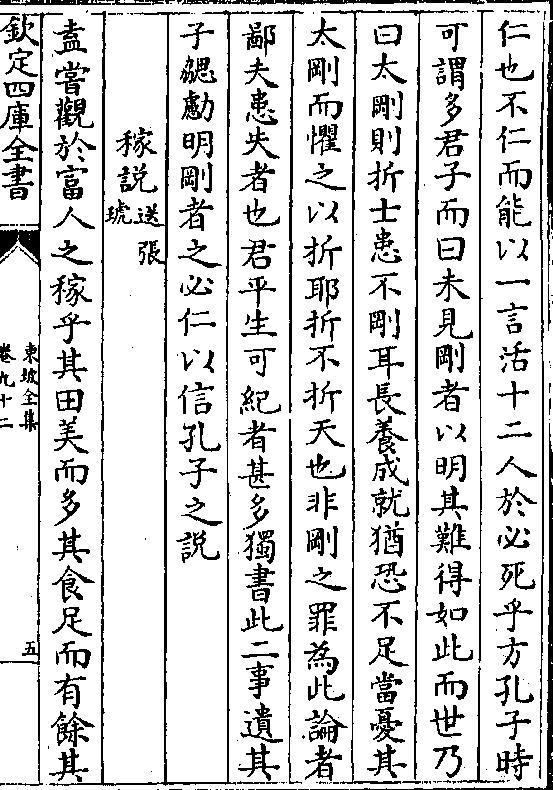 仁也不仁而能以一言活十二人於必死乎方孔子時
可謂多君子而曰未見剛者以明其難得如此而世乃
曰太剛則折士患不剛耳長養成就猶恐不足當憂其
太剛而懼之以折耶折不折天也非剛之罪為此論者
鄙夫患失者也君平生可紀者甚多獨書此二事遺其
子勰勴明剛者之必仁以信孔子之説
稼説送張琥
盍嘗觀於富人之稼乎其田美而多其食足而有餘其
欽定四庫全書
東坡全集
卷九十二
五